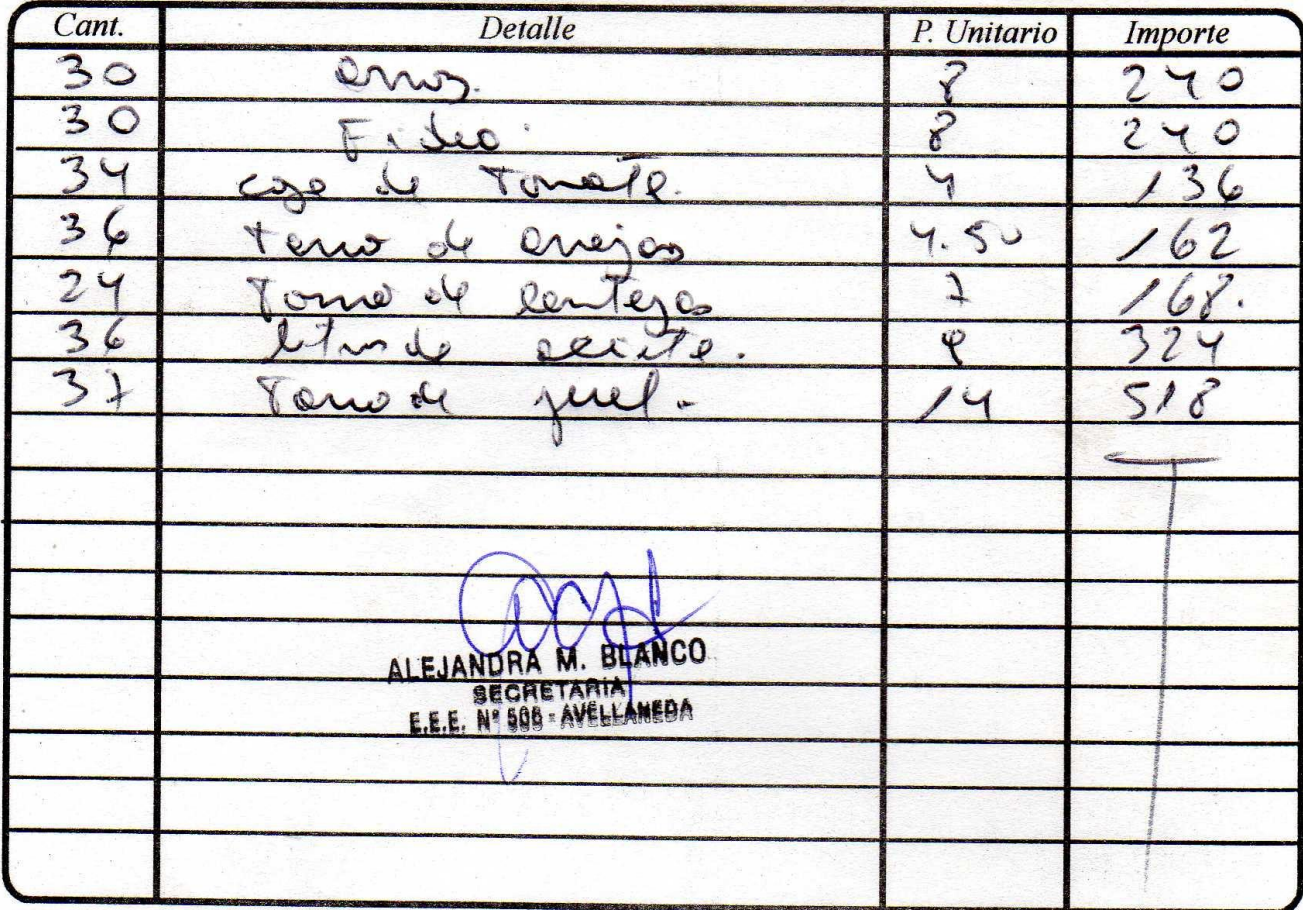 Cant. Detalle P. Unitario Importe
30 arroz. 8 240
30 Fideo. 8 240
34 caja de Tomate. 4 136
36 tarro de arvejas 4.50 162
24 Tarro de lentejas 7 168.
36 litros de aceite. 9 324
37 Tarro de jurel. 14 518
ALEJANDRA M. BLANCO
SECRETARIA
E.E.E. N° 505 - AVELLANEDA